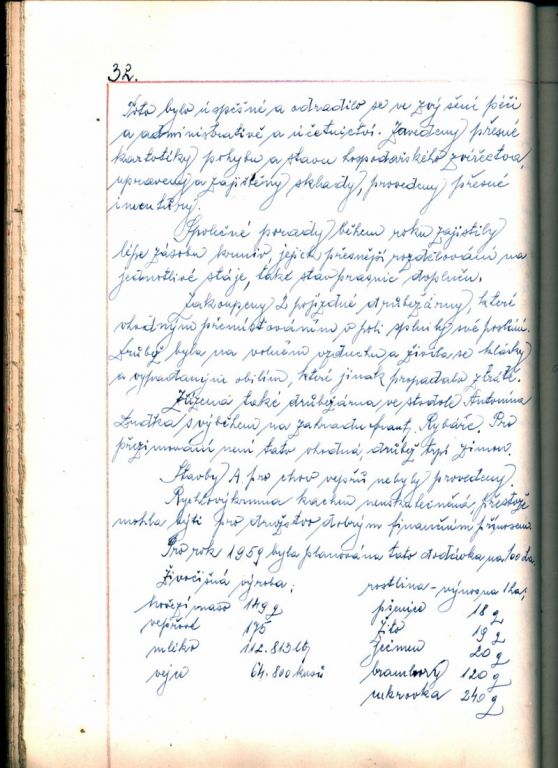 32.
Toto bylo úspěšné a odradilo se ve zvýšené péči
a administrativě a účetnictví. Zavedeny přesné
kartotéky pohybu a stavu hospodářského zvířectva,
upraveny a zajištěny sklady, provedeny přesné
inventury.
Společné porady během roku zajistily
lépe zásobu krmiv, jejich přesnější rozdělování na
jednotlivé stáje, také stav prasnic doplněn.
Zakoupeny 2 pojízdné drůbežárny, které
vhodným přemisťováním v poli splnily své poslání.
Drůbež byla na volném vzduchu a živila se hlávky
a vypadaným obilím, které jinak propadalo ztrátě.
Zřízena také drůbežárna ve stodole Antonína
Ludka s výběhem na zahradu Rybáře. Pro
přezimování není tato vhodná, drůbež trpí zimou.
Stavby A pro chov vepřů nebyly provedeny.
Rychlovýkrmna kachen neuskutečněna, přestože
mohla býti pro družstvo dobrým finančním přínosem.
Pro rok 1959 byla plánována tato dodávka na 100 ha.
Živočišná výroba: rostlina - výnos na 1 ha;
hovězí maso 149 q pšenice 18 q
vepřové 175 žito 19 q
mléko 112.813 lt ječmen 20 q
vejce 64.800 kusů brambory 120 q
cukrovka 240 q